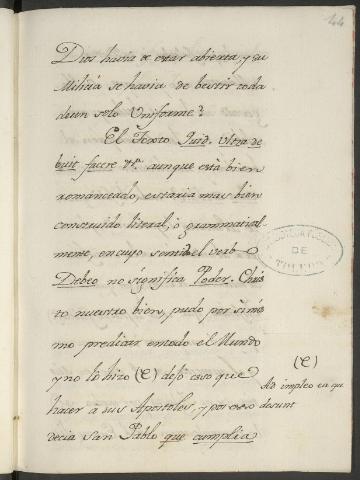 44
Dios havia de estar abierta, y su
Milicia se havia de bestir toda
de un solo Uniforme?
El Texto Quid Ultra de
buit facere &c. aunque está bien
romanceado, estaria mas bien
construido literal, ò grammatical
mente, en cuyo sentido el verbo
Debeo no significa Poder. Chris
to nuestro bien, pudo por si mis
mo predicar en todo el Mundo
y no lo hizo (C) dejó eso que
hacer a sus Apostoles, y por eso
decia San Pablo que cumplia
(C)
Ad impleo ea qu
desunt
DE
TOLEDO